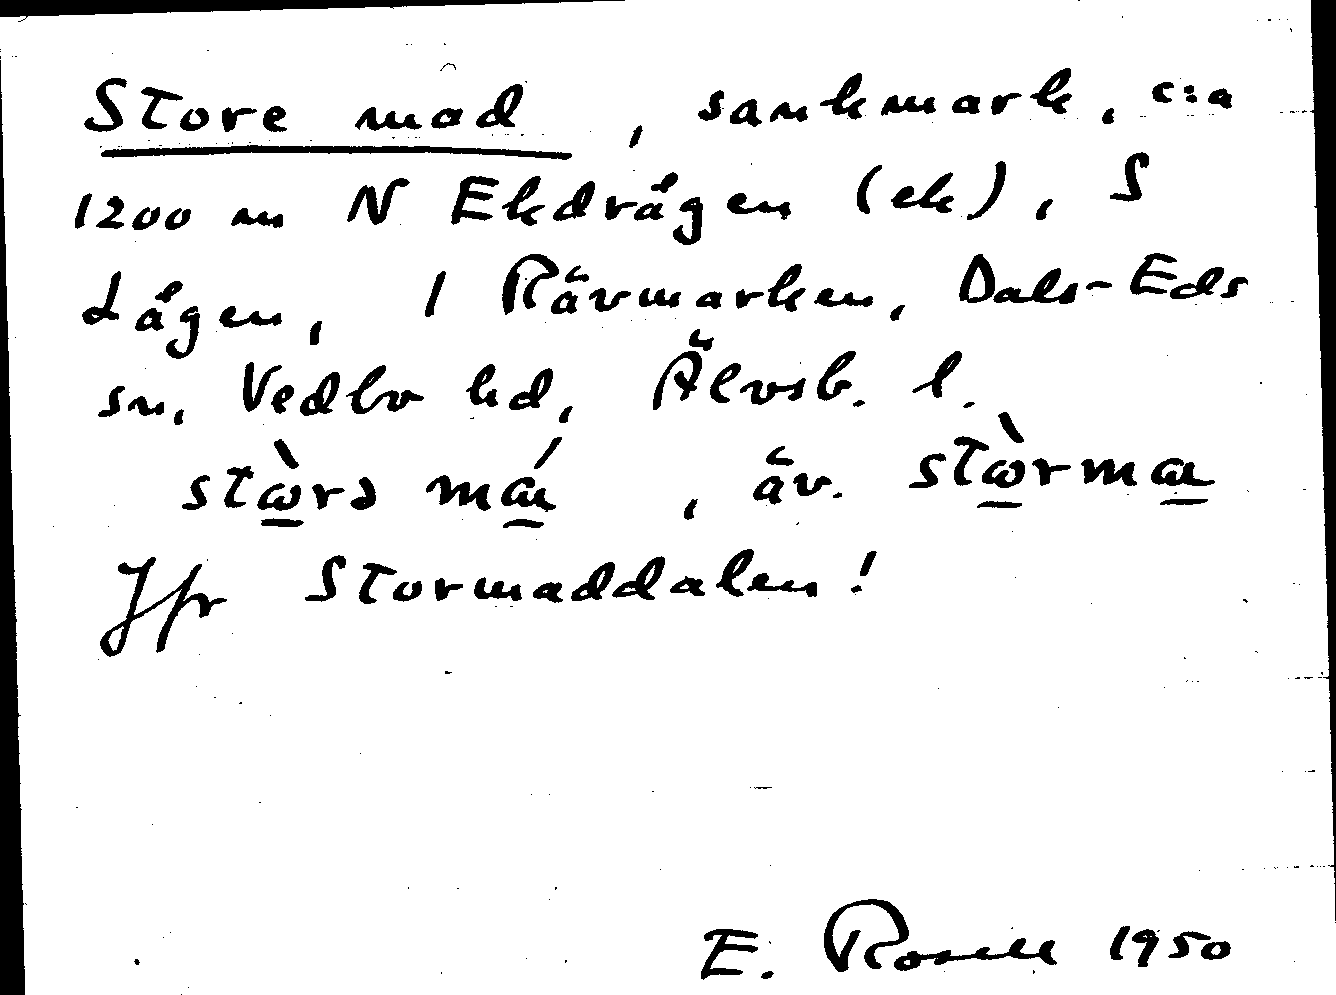 Store mad, sankmark, c:a
1200 m N Ekdrågen (ek), S
Lågen, / Rävmarken, Dals-Eds
sn, Vedbo hd, Älvsb. l.
stὼ̱rə mɑ̱́, äv. stὼ̱rmɑ̱
Jfr Stormaddalen!
E. Rosell 1950